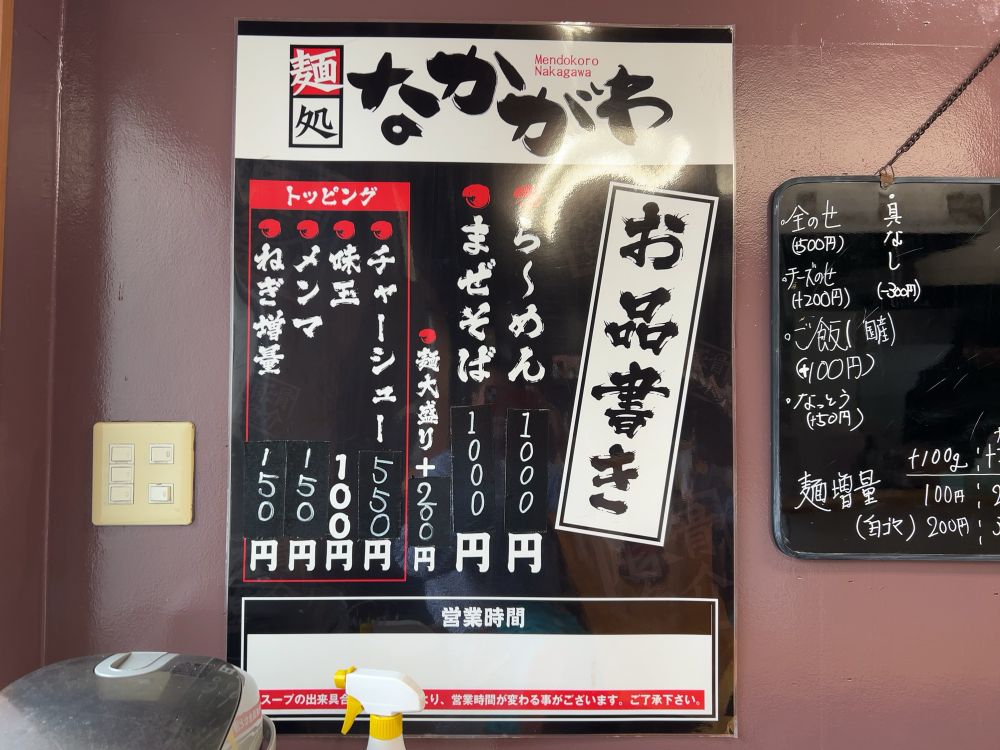 麺処
なかがわ
Mendokoro
Nakagawa
お品書き
らーめん 1000円
まぜそば 1000円
麺大盛り+200円
トッピング
チャーシュー 550円
味玉 100円
メンマ 150円
ねぎ増量 150円
営業時間
スープの出来具合
より、営業時間が変わる事がございます。ご了承下さい。
・具なし
(-300円)
・全のせ
(+500円)
・チーズのせ
(+200円)
・ご飯(国産)
(+100円)
・なっとう
(+50円)
+100g
麺増量 100円
200円